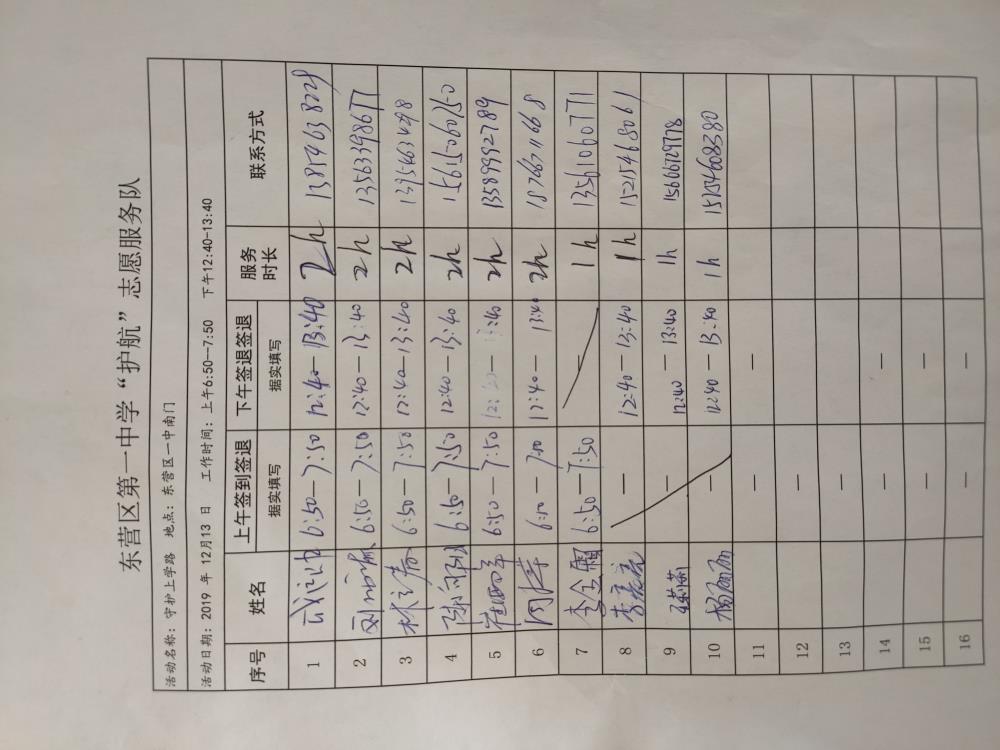 东营区第一中学“护航”志愿服务队
活动名称：守护上学路 地点：东营区一中南门
活动日期：2019 年 12月13 日 工作时间：上午6:50—7:50 下午12:40-13:40
序号 姓名 上午签到签退 据实填写 下午签退签退 据实填写 服务时长 联系方式
1 6:50—7:50 12:40—13:40 2h
2 6:50—7:50 12:40—13:40 2h 13563398677
3 6:50—7:50 12:40—13:40 2h
4 6:50—7:50 12:40—13:40 2h
5 6:50—7:50 2h 13589992789
6 6:50—7:50 12:40—13:40 2h 18766711668
7 6:50—7:50 1h 13561060771
8 — 12:40—13:40 1h 15215468061
9 — 12:40—13:40 1h 15666729778
10 杨丽丽 — 12:40—13:40 1h 15154608380
11 —
12
13
14 — —
15 — —
16 — —